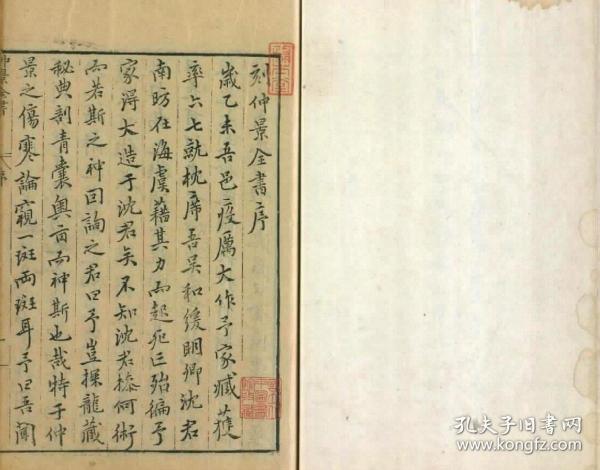 刻仲景全書序
歲乙未吾邑疫厲大作予家臧獲
率六七就枕席吾吳和緩明卿沈君
南昉在海虞藉其力而起死亡殆徧予
家得大造于沈君矣不知沈君操何術
而若斯之神因詢之君曰予豈探龍藏
秘典剖青囊奧旨而神斯也哉特于仲
景之傷寒論窺一斑兩斑耳予曰吾聞
仲景全書
序
一
孔夫子旧书网
kongfz.com